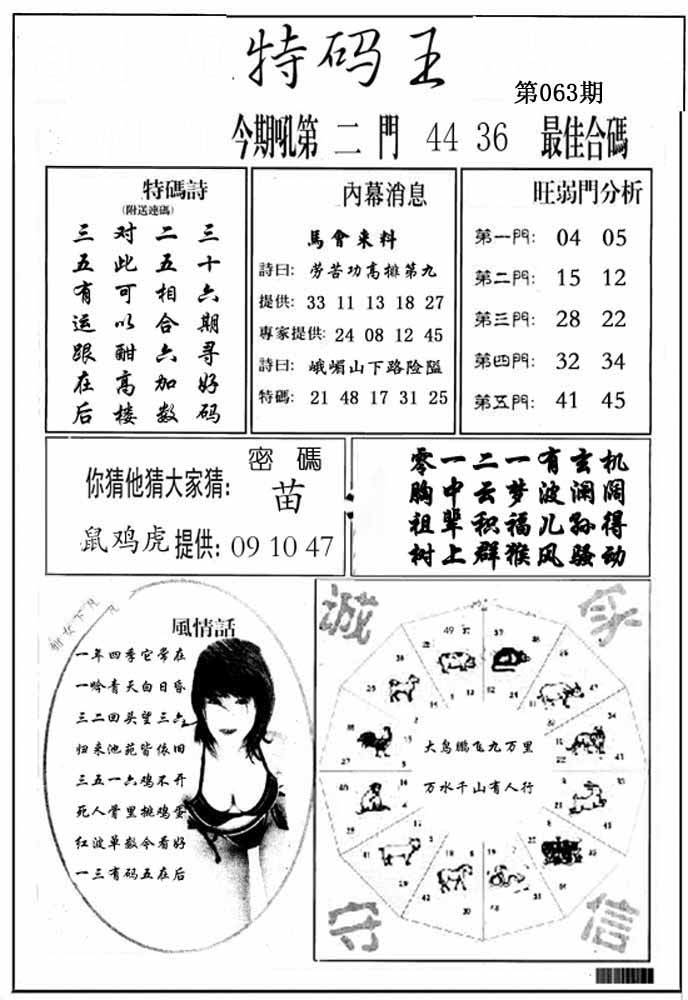 特码王
第063期
今期吼第 二 門 44 36 最佳合碼
特碼詩
(附送連碼)
三十六期寻好码
二五相合六加数
对此可以酣高楼
三五有运跟在后
內幕消息
馬會来料
詩曰: 劳苦功高排第九
提供: 33 11 13 18 27
專家提供: 24 08 12 45
詩曰: 峨嵋山下路险隘
特碼: 21 48 17 31 25
旺弱門分析
第一門: 04 05
第二門: 15 12
第三門: 28 22
第四門: 32 34
第五門: 41 45
密碼
你猜他猜大家猜: 苗
鼠鸡虎 提供: 09 10 47
零一二一有玄机
胸中云梦波澜阔
祖辈积福儿孙得
树上群猴风骚动
風情話
一年四季它常在
一吟青天白日昏
三二回头望三六
归来池苑皆依旧
三五一六鸡不开
死人骨里挑鸡蛋
红波单数令看好
一三有码五在后
诚
守
信
大鸟鹏飞九万里
万水千山有人行